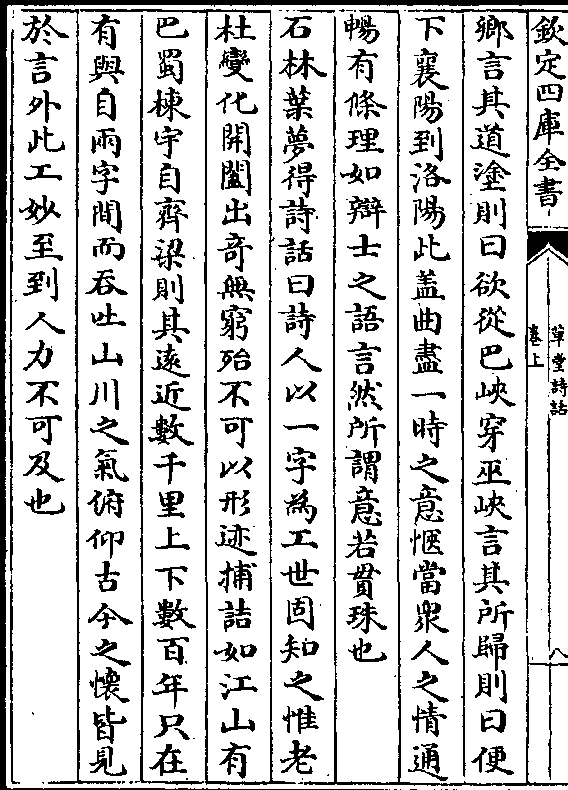 欽定四庫全書
草堂詩話
卷上
八
鄉言其道塗則曰欲從巴峽穿巫峽言其所歸則曰便
下襄陽到洛陽此蓋曲盡一時之意愜當衆人之情通
暢有條理如辯士之語言然所謂意若貫珠也
石林葉夢得詩話曰詩人以一字為工世固知之惟老
杜變化開闔出竒無窮殆不可以形迹捕詰如江山有
巴蜀棟宇自齊梁則其逺近數千里上下數百年只在
有與自兩字間而吞吐山川之氣俯仰古今之懷皆見
於言外此工妙至到人力不可及也